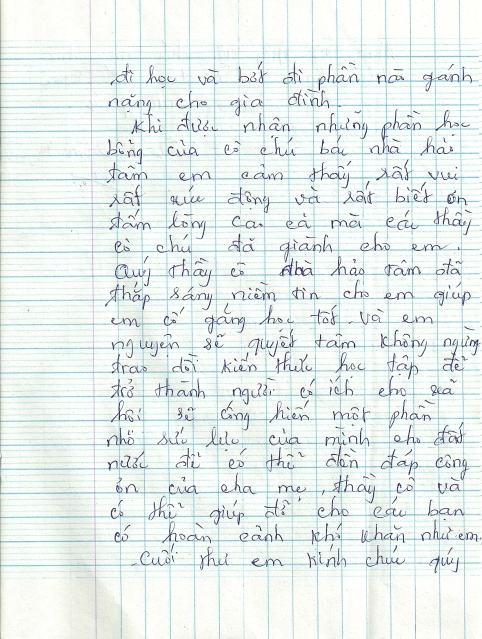 đi học và bớt đi phần nào gánh
nặng cho gia đình.
Khi được nhận những phần học
bổng của cô chú bác nhà hảo
tâm em cảm thấy rất vui
rất xúc động và rất biết ơn
tấm lòng cao cả mà các thầy
cô chú đã giành cho em.
Quý thầy cô nhà hảo tâm đã
thắp sáng niềm tin cho em giúp
em cố gắng học tốt. và em
nguyện sẽ quyết tâm không ngừng
trao dồi kiến thức học tập để
trở thành người có ích cho xã
hội sẽ cống hiến một phần
nhỏ sức lực của mình cho đất
nước để có thể đền đáp công
ơn của cha mẹ, thầy cô và
có thể giúp đỡ cho các bạn
có hoàn cảnh khó khăn như em.
-Cuối thư em kính chúc quý